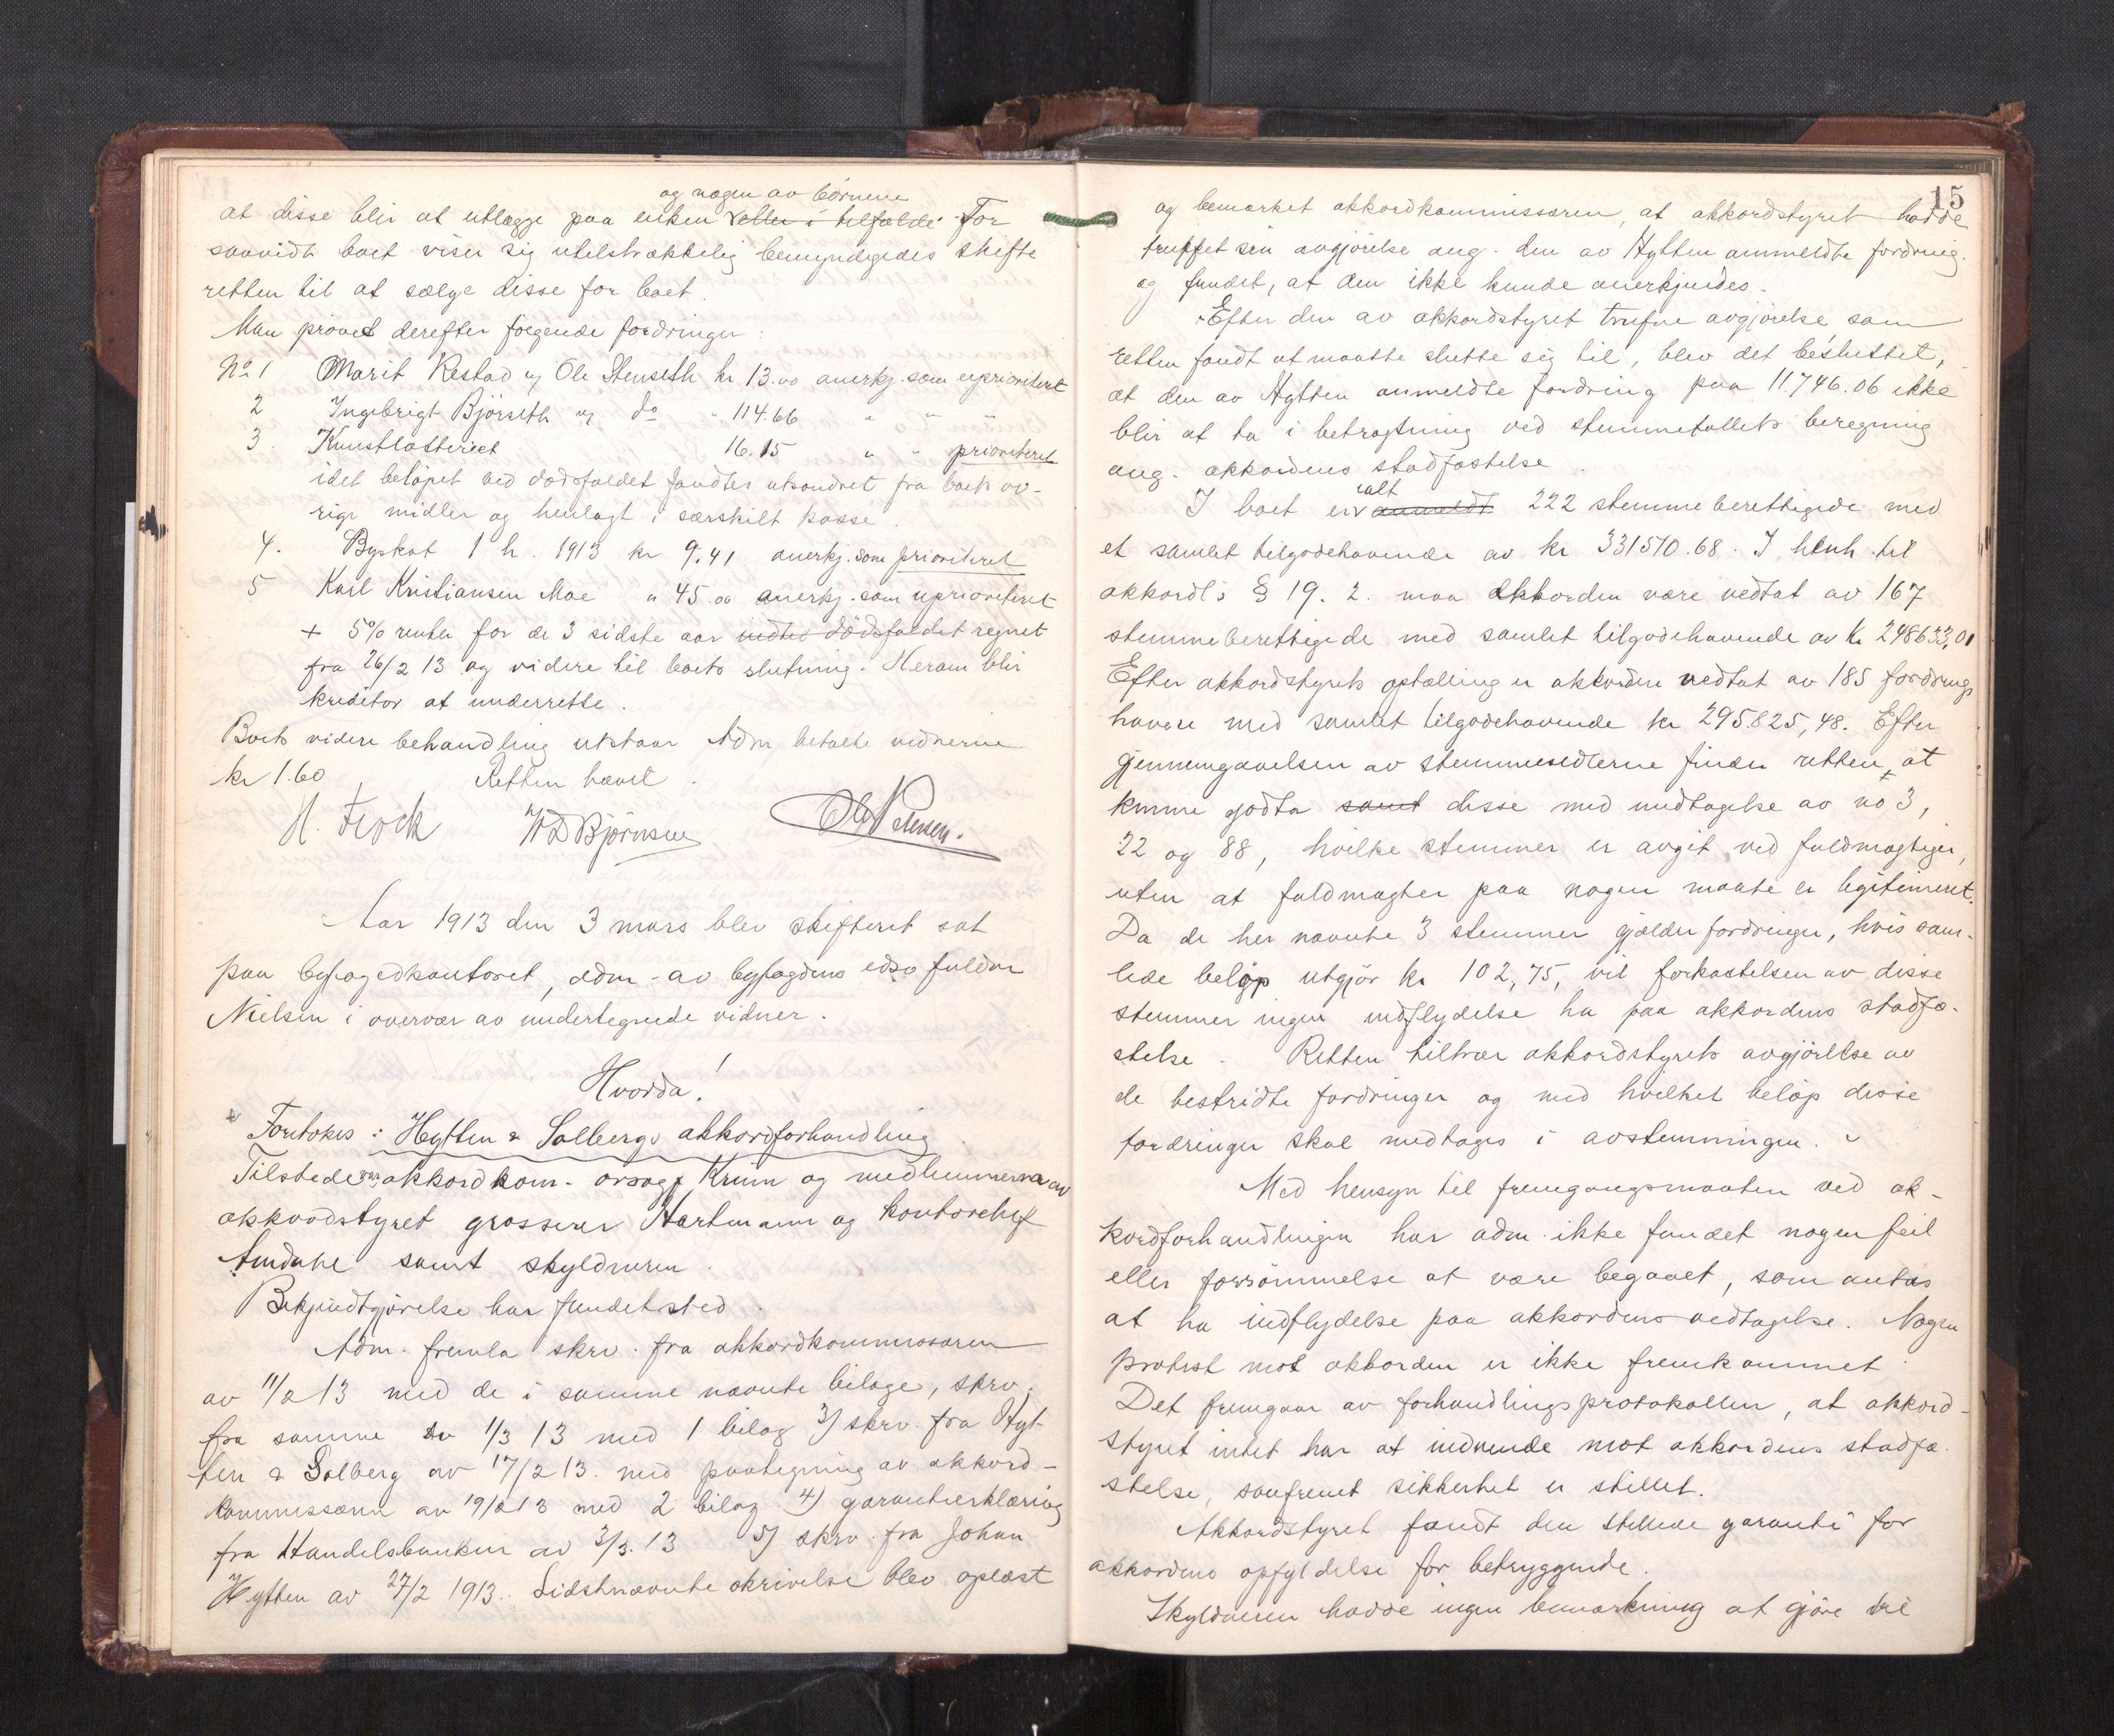 og nogen av börnene
at disse blir at utlægge paa enken eller i tilfælde For
saavidt boet viser sig utilstrækkelig bemyndigedes skifte
retten til at sælge disse for boet.
Man prövet derefter fölgende fordringer:
No 1 Marit Restad og Ole Stenseth kr 13.00 anerkj. som uprioritert
2 Ingebrigt Björseth og do " 114.66 " " "
3. Kunstlotteriet 16.15 " " prioriteret
idet belöpet ved dödsfaldet fandtes utsondret fra boets öv-
rige midler og henlagt i særskilt kasse.
4. Byskat 1 h. 1913 kr 9.41 anerkj. som prioriteret
5 Karl Kristiansen Moe " 45.00 anerkj. som uprioriteret
+ 5% renter for de 3 sidste aar dödsfaldet regnet
fra 26/2 13 og videre til boets slutning. Herom blir
kreditor at underrette.
Boets videre behandling utstaar Adm betalte vidnerne
kr 1.60 Retten hævet.
Björnsen
Aar 1913 den 3 mars blev skifteret sat
paa byfogedkontoret, adm. av byfogdens edsv fuldm
Nielsen i overvær av undertegnede vidner.
Hvorda!
Foretokes: Hytten & Solbergs akkordforhandling.
Tilstede var akkordkom. orsagf Krum og medlemmerne av
akkordstyret grosserer Hartmann og kontorchef
Amdahl samt skyldneren.
Bekjendtgjörelse har fundet sted.
Adm. fremla skrv. fra akkordkommissæren
av 11/2 13 med de i samme nævnte bilage, skrv.
fra samme av 1/3 13 med 1 bilag 3) skrv. fra Hyt-
ten & Solberg av 17/2 13. med paategning av akkord-
kommissæren av 19/2 13 med 2 bilag 4) garantierklæring
fra Handelsbanken av 3/3. 13 5) skrv. fra Johan
Hytten av 27/2 1913. Sidstnævnte skrivelse blev oplæst
15
og bemerket akkordkommissæren, at akkordstyret hadde
truffet sin avgjörelse ang. den av Hytten anmeldte fordring.
og fundet, at den ikke kunde anerkjendes.
Efter den av akkordstyret trufne avgjörelse som
retten fandt at maatte slutte sig til, blev det besluttet,
at den av Hytten anmeldte fordring paa 11.746.06 ikke
blir at ta i betragtning ved stemmetallets beregning
ang. akkordens stadfæstelse.
ialt
I boet er anmeldt 222 stemmeberettigede med
et samlet tilgodehavende av kr 331510.68. I henh. til
akkordl; § 19. 2. maa akkorden være vedtat av 167
stemmeberettigede med samlet tilgodehavende av kr 248633,01
Efter akkordstyrets optælling er akkorden vedtat av 185 fordrings
havere med samlet tilgodehavende kr 295825,48. Efter
gjennemgaaelsen av stemmesedlerne finder retten at
kunne godta samt disse med undtagelse av no 3,
22 og 88, hvilke stemmer er avgit ved fuldmægtiger,
uten at fuldmagter paa nogen maate er legitimeret.
Da de her nævnte 3 stemmer gjælder fordringer, hvis sam-
lede belöp utgjör kr 102,75, vil forkastelsen av disse
stemmer ingen indflydelse ha paa akkordens stadfæ-
stelse. Retten tiltrær akkordstyrets avgjörelse av
de bestridte fordringer og med hvilket belöp disse
fordringer skal medtages i avstemningen.
Med hensyn til fremgangsmaaten ved ak-
kordforhandlingen har adm. ikke fundet nogen feil
eller forsömmelse at være begaaet, som antas
at ha indflydelse paa akkordens vedtagelse. Nogen
protest mot akkorden er ikke fremkommet.
Det fremgaar av forhandlingsprotokollen, at akkord-
styret intet har at indvende mot akkordens stadfæ-
stelse, saafremt sikkerhet er stillet.
Akkordstyret fandt den stillede garanti for
akkordens opfyldelse for betryggende.
Skyldneren hadde ingen bemerkning at gjöre til